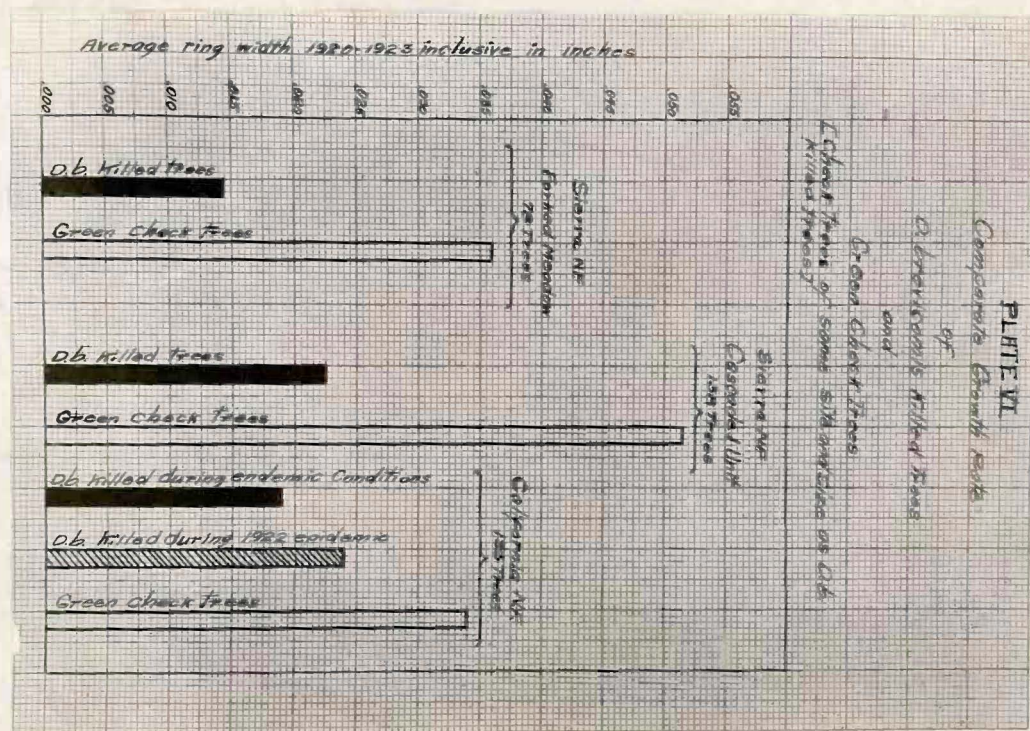 PLATE VI
Growth Rate
of
D. brevicomis Killed Trees
and
Green Check Trees
[Check trees of same site and size as D.b.
killed trees]
Average ring width 1920-1923 inclusive in inches
.000 .005 .010 .015 .020 .025 .030 .035 .040 .045 .050 .055
D.b. Killed trees
Green Check Trees
Sierra NF
Forked Meadow
72 Trees
D.b. Killed Trees
Green Check Trees
Sierra NF
Cascadel Unit
Trees
D.b. Killed during endemic Conditions
D.b. Killed during 1922 epidemic
Green Check Trees
California NF
Trees